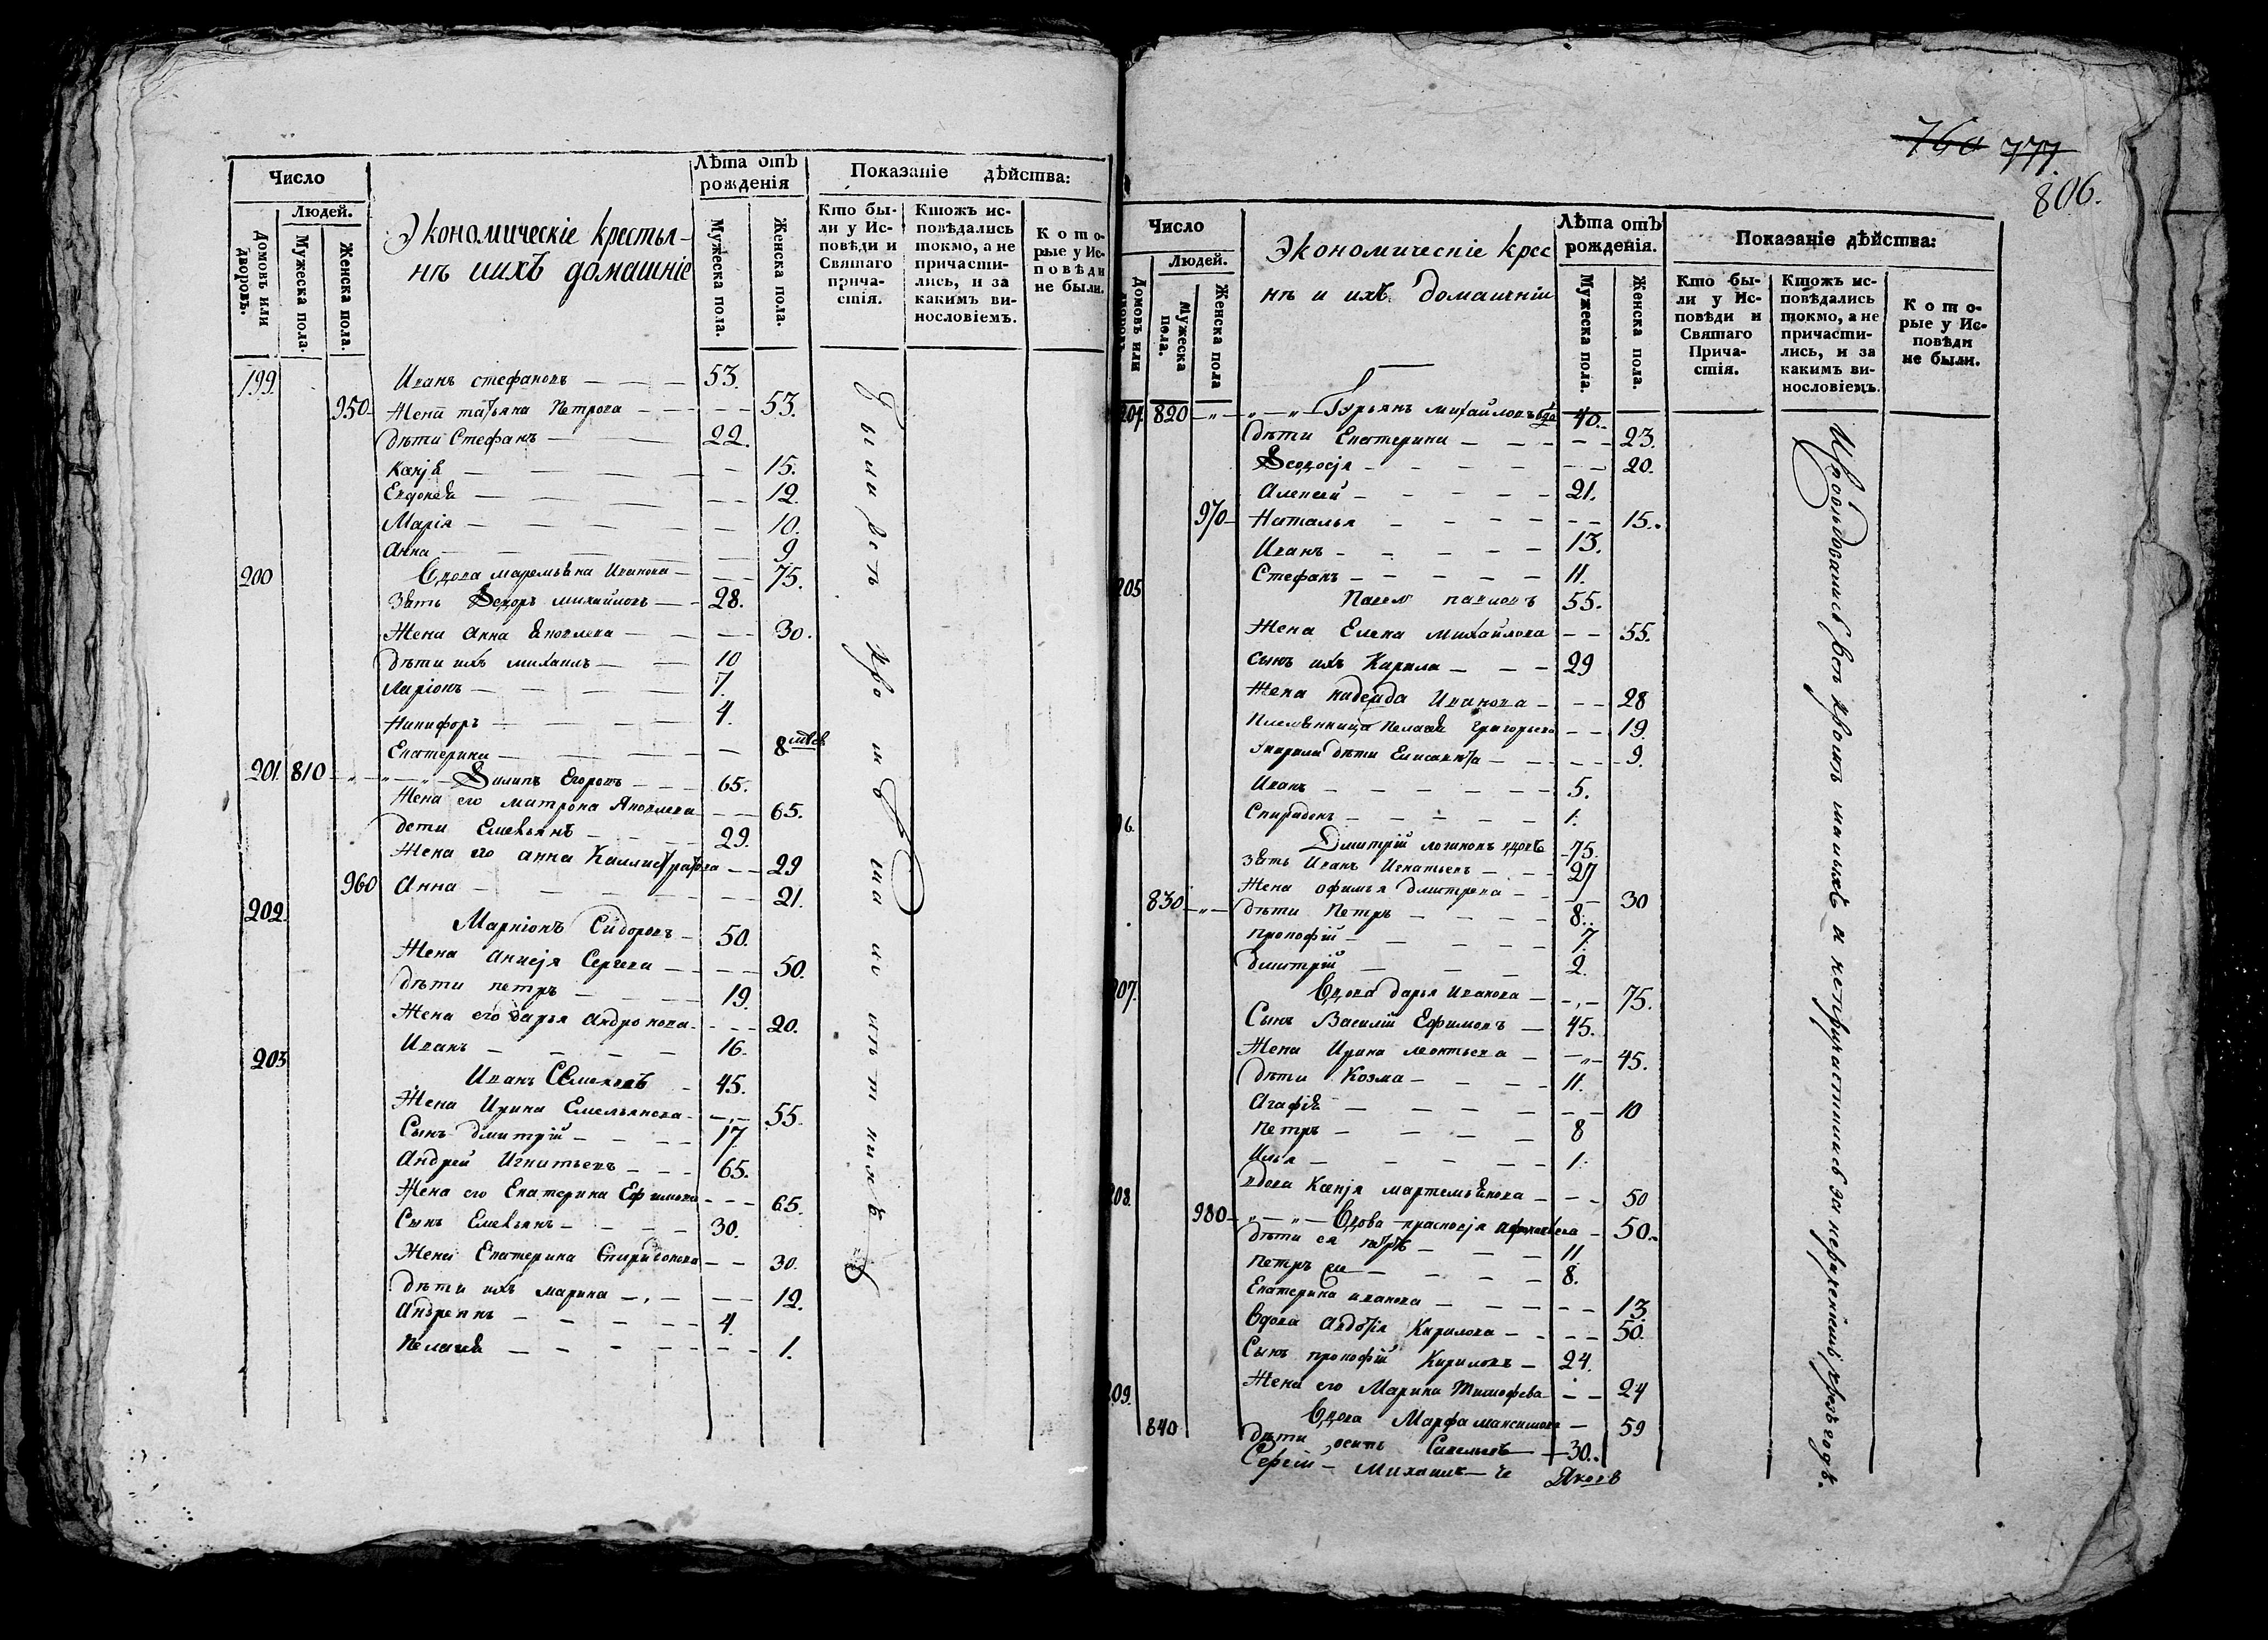 Число
Людей.
Домовъ или дворовъ.
Мужеска пола.
Женска пола.
Экономическіе крестья-
нѣ иихъ домашніе
Лѣта отъ рожденія
Мужеска пола.
Женска пола.
Показаніе дѣйства:
Кто бы-
ли у Ис-
повѣди и
Святаго
прича-
стія.
Ктожъ ис-
повѣдались
токмо, а не
причасти-
лись, и за
какимъ ви-
нословіемъ.
Кото-
рые у Ис-
повѣди
не были.
199. Иванъ стефановъ — — — 53.
950 Жена татьяна Петрова — — — 53.
дѣти Стефанъ — — 22.
Ксн҃ія — — — 15.
Евдокея — — — 12.
Марія — — — 10.
Анна — — — 9
200 Вдова маремьяна Иванова — — 75.
Зять Ѳедоръ михайловъ — 28.
Жена анна Яковлева — — 30.
дѣти ихъ михаилъ — — 10
Ларіонъ — — — 7.
Никифоръ — — — 4.
Екатерина — — — 8 мѣс
201. 810 — „ — „ — Филипъ Егоровъ — — 65.
Жена его матрона Яковлева — — 65.
дети Емельянъ — — 29.
Жена его анна Каллистратова — — 29
960 Анна — — — 21.
202. Маркіонъ Сидоровъ — 50.
Жена Анисія Сергеева — — 50.
дѣти петръ — — 19.
Жена его дарья Андронова — — 20.
Иванъ — — — 16.
203 Иванъ — 45.
Жена Ирина Емельянова — — 55.
Сынъ дмитрій — — 17.
Андрей Игнатьевъ — — 65.
Жена его Екатерина Ефимова — — 65.
Сынъ Емельянъ — — 30.
Жена Екатерина Спиридонова — — 30.
дѣти ихъ марина — — 12.
Андреянъ — — — 4.
Пелагея — — — 1.
Были всѣ кромѣ
760 777.
806.
Число
Людей.
Домовъ или дворовъ
Мужеска пола.
Женска пола
Экономическіе крес
нѣ и ихъ домашніи
Лѣта отъ рожденія.
Мужеска пола.
Женска пола.
Показаніе дѣйства:
Кто бы-
ли у Ис-
повѣди и
Святаго
Прича-
стія.
Ктожъ ис-
повѣдались
токмо, а не
причасти-
лись, и за
какимъ ви-
нословіемъ.
Кото-
рые у Ис-
повѣди
не были.
204. 820 — „ — „ — „ — Гурьянъ михайловъ вдо 40.
дѣти Екатерина — — — 23.
Ѳеодосія — — — 20.
Алексей — — — 21.
970 Наталья — — — 15.
Иванъ — — — 13.
Стефанъ — — — 11.
205 Павелъ павловъ 55.
Жена Елена михайлова — — 55.
сынъ ихъ Кирила — — 29
Жена надежда Иванова — — 28
Племянница Пелагея григорьева — — 19.
У кирила дѣти Елисавета — — 9.
Иванъ — — — 5.
Спиридонъ — — — 1.
06. Дмитрій логиновъ вдовъ 75.
зять Иванъ Игнатьевъ — — 27
Жена офимья дмитрева — — 30
830 — „ — дѣти Петръ — — 8.
Прокофій — — — 7.
дмитрій — — — 2.
207. Вдова дарья Иванова — — 75.
Сынъ Василій Ефимовъ — 45.
Жена Ирина леонтьева — — 45.
дѣти Козма — — — 11.
Агафія — — — 10
Петръ — — — 8
Илья — — — 1.
208. вдова Ксенія мартемьянова — — 50
980 — „ — „ — Вдова праскосія — 50.
дѣти ея петръ — — 11
Петръ — — — 8.
Екатерина иванова — — 13.
Вдова Авдотія Кирилова — — 50.
Сынъ прокофій Кириловъ — 24.
Жена его Марина Тимофева — — 24
209. Вдова Марфа максимова — 59
840 дѣти осипъ Савельевъ — 30.
Сергій — Михаилъ —
Исповѣдовались всѣ кромѣ малыхъ а непричастились за нерачениемъ чрезъ годъ.